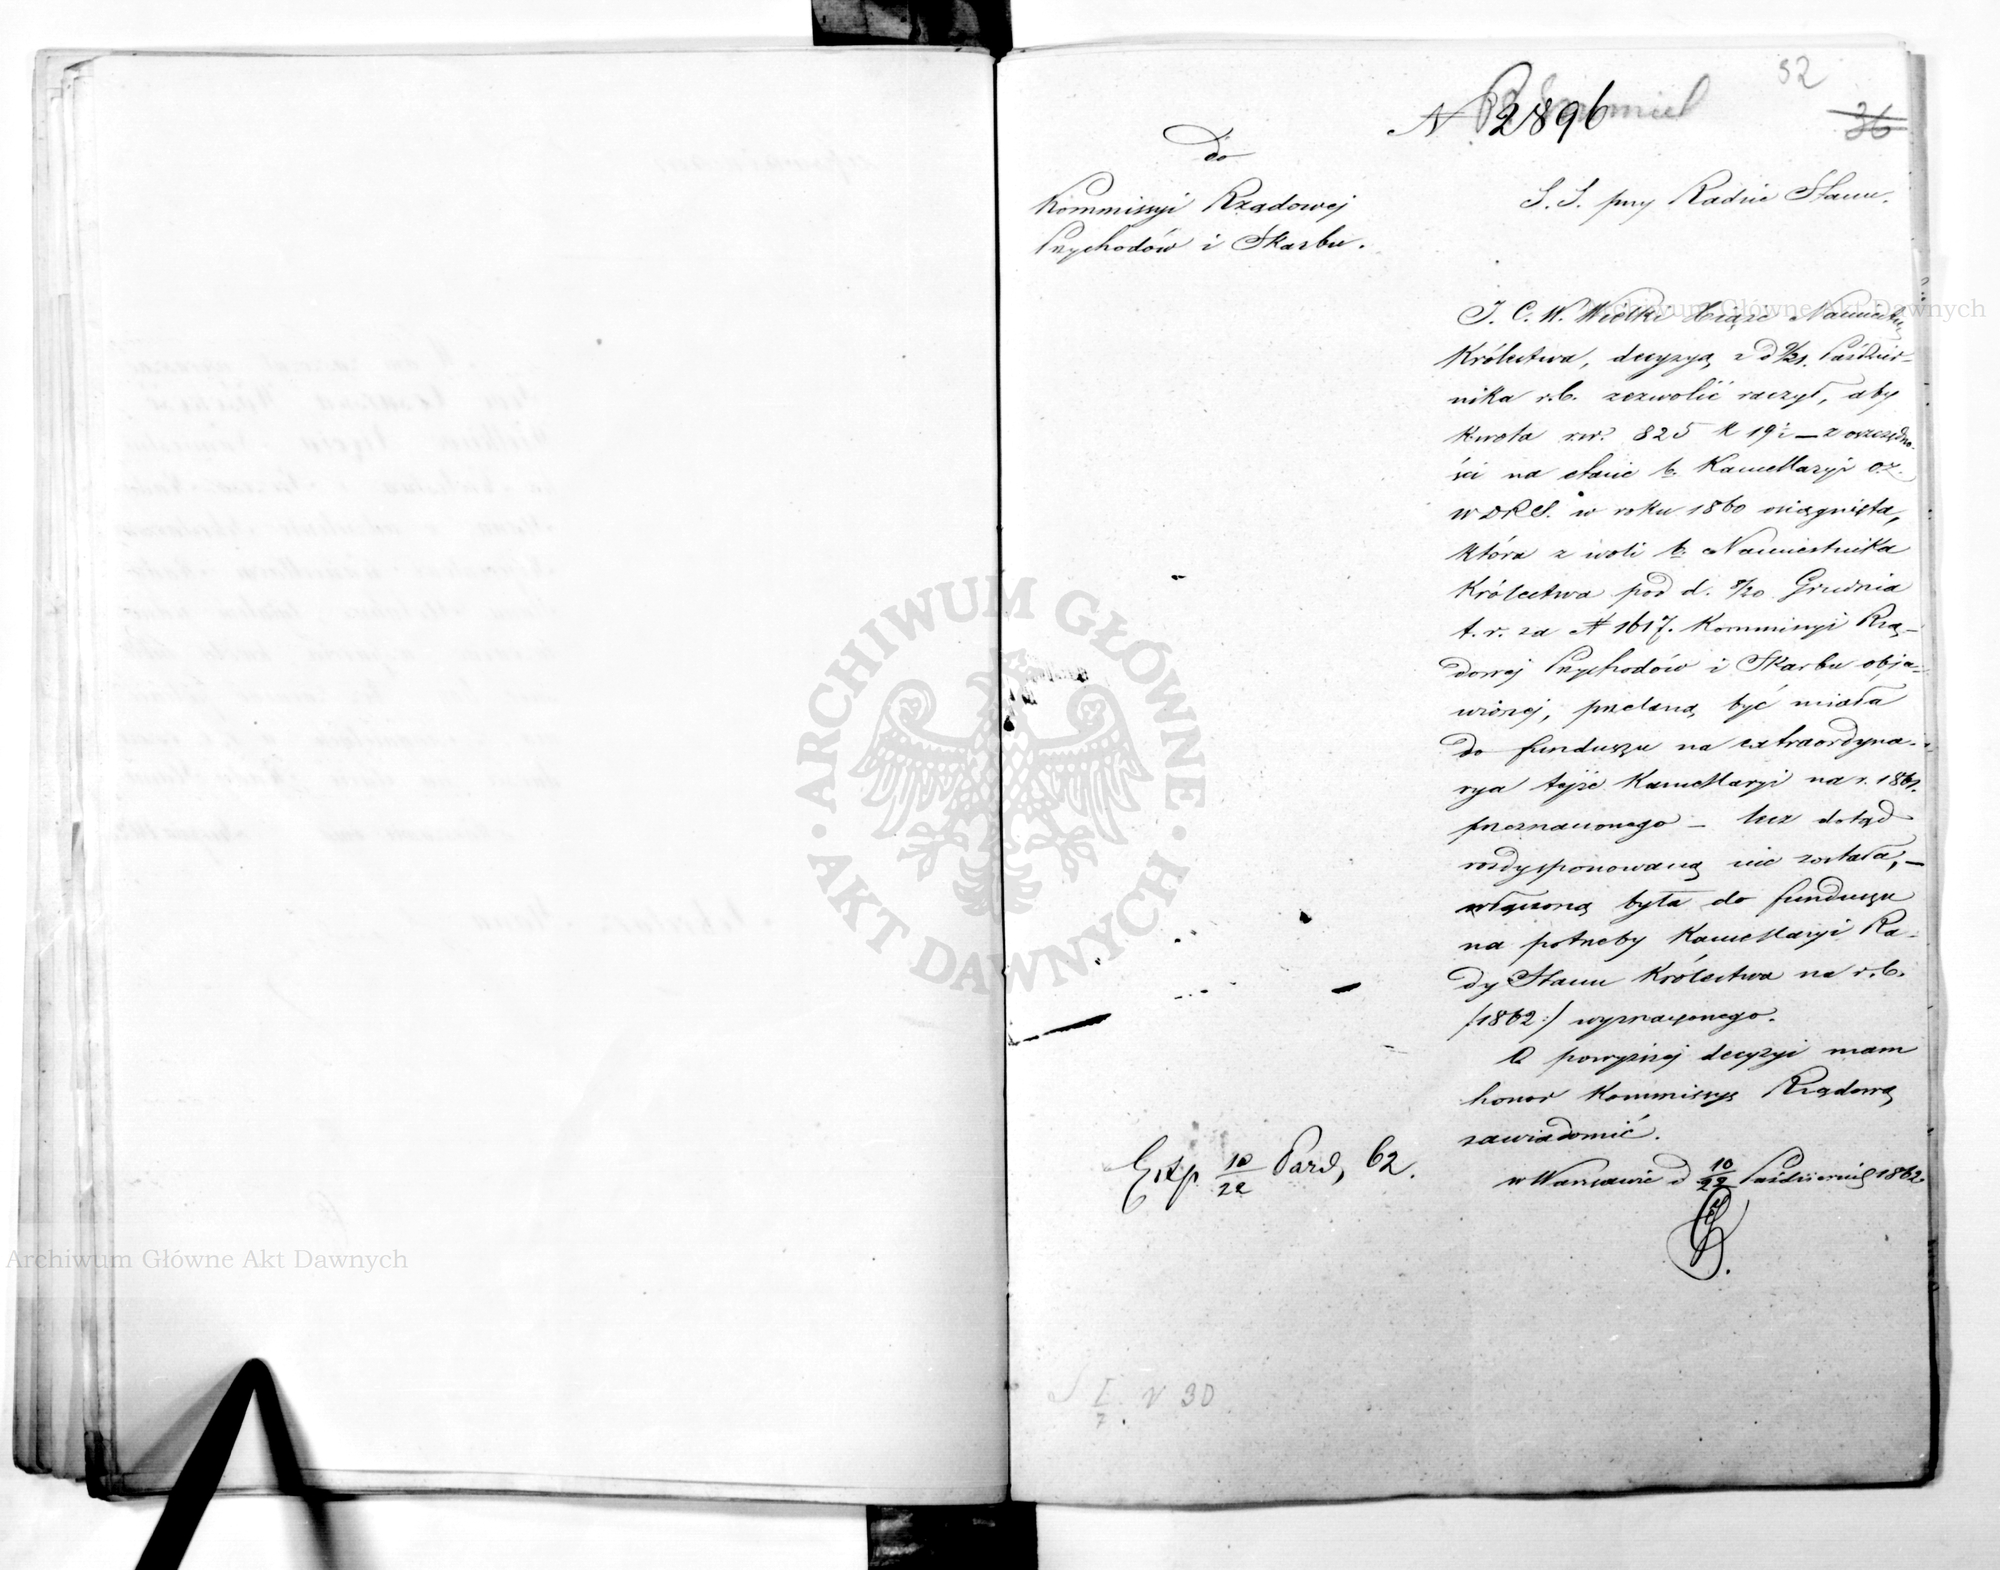 52
36
N 2896
do
Kommissyi Rządowej
Przychodów i Skarbu.
S. S. przy Radzie Stanu.
J. C. W. Wielki Xiąże Namiestnik
Królestwa, decyzyą z d 9/21. Paździer-
nika r.b. zezwolić raczył, aby
kwota rs. 825 k 19½ — z oszczędno-
ści na etacie b. Kancellaryi O.Z.
W D R S. w roku 1860 osiągnięta,
która z woli b. Namiestnika
Królestwa pod d. 8/20 Grudnia
t. r. za N 1617. Kommissyi Rzą-
dowej Przychodów i Skarbu obja-
wionej, przelaną być miała
do funduszu na extraordyna-
rya tejże Kancellaryi na r. 1861.
przeznaczonego — lecz dotąd
rozdysponowaną nie została, —
włączoną była do funduszu
na potrzeby Kancellaryi Ra-
dy Stanu Królestwa na r.b.
/1862:/ wyznaczonego.
O powyższej decyzyi mam
honor Kommissyę Rządową
zawiadomić.
w Warszawie d 10/22 Październik 1862
Exp 10/22 Paźd, 62.
S I/7. N 30
Archiwum Główne Akt Dawnych
Archiwum Główne Akt Dawnych
ARCHIWUM GŁÓWNE
AKT DAWNYCH